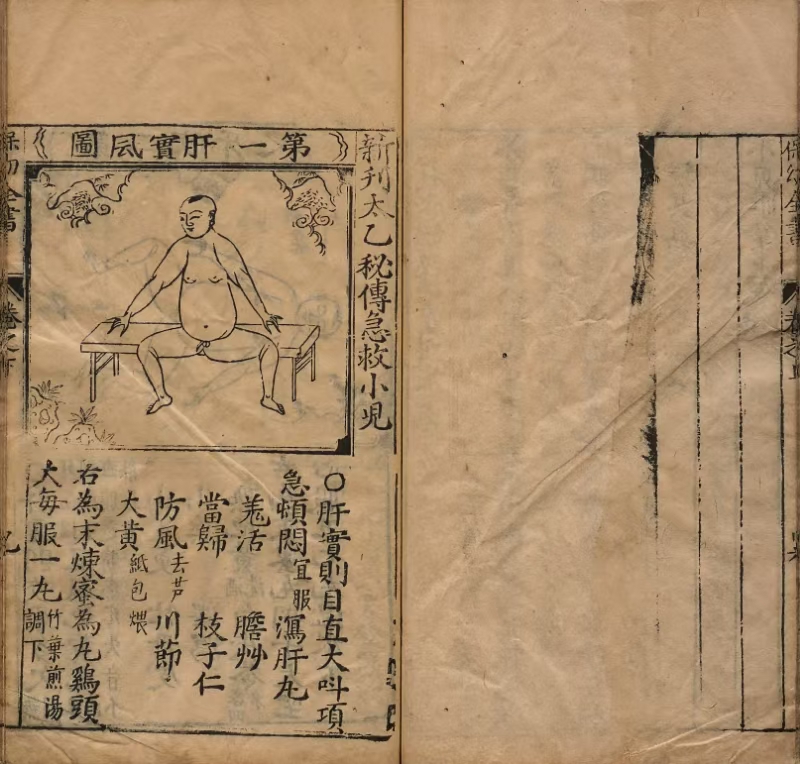 保幼全書 卷之
新刊太乙秘傳急救小兒
第一肝實凨圖
○肝實則目直大呌項
急煩悶宜服瀉肝丸
羗活 膽艸
當歸 枝子仁
防風去芦 川節
大黄紙包煨
右為末煉蜜為丸鷄頭
大每服一丸竹葉煎湯調下
保幼全書 卷之下